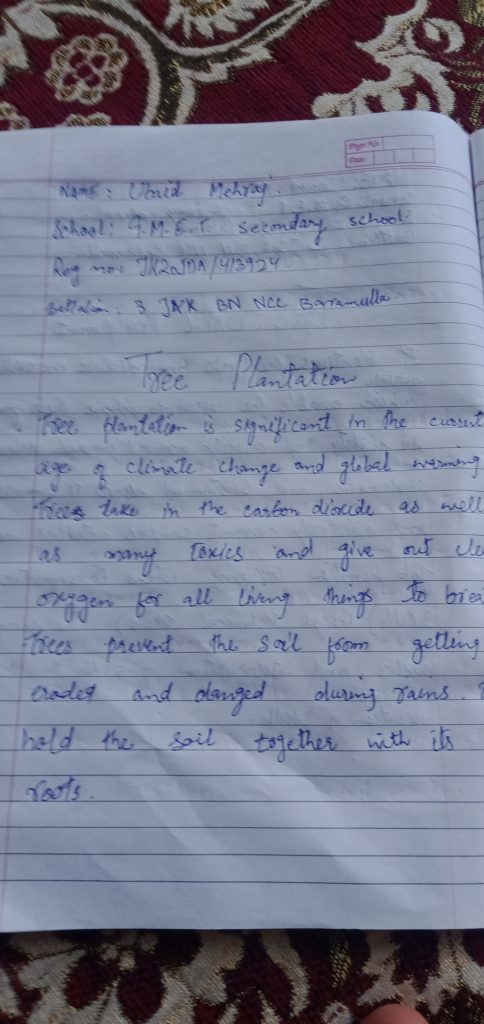 Page No
Date
Name : Ubaid Mehraj.
School: G.M.E.T. secondary school.
Reg no: JK20JDA/413924
Battalion : 3 J&K BN NCC Barramulla
Tree Plantation
Tree plantation is significant in the current
age of climate change and global warming
Trees take in the carbon dioxide as well
as many toxics and give out cle
oxygen for all living things to brea
Trees prevent the soil from getting
eroded and danged during rains.
hold the soil together with its
roots.